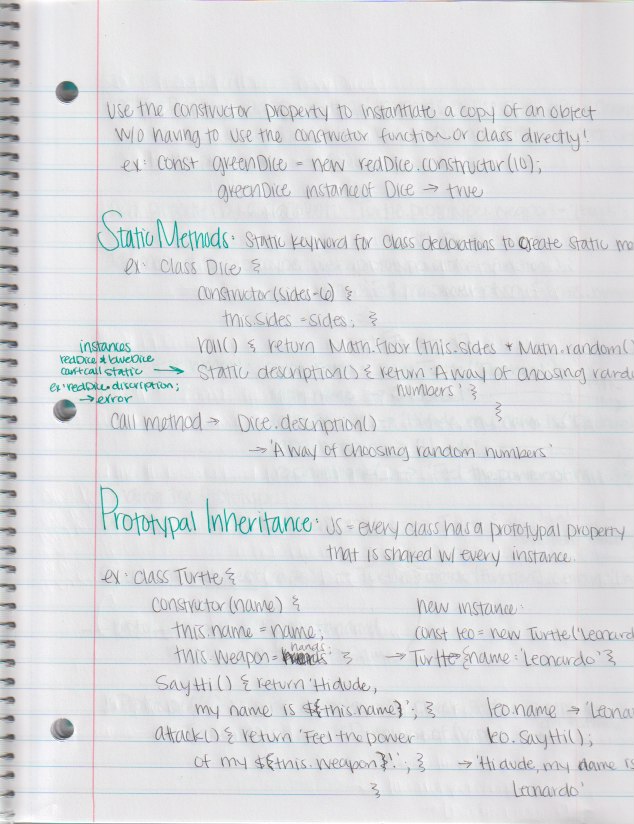 Use the constructor property to instantiate a copy of an object
w/o having to use the constructor function or class directly!
ex: const greenDice = new redDice.constructor(10);
greenDice instanceof Dice → true
Static Methods: Static keyword for class declarations to create static
ex: class Dice {
constructor(sides=6) {
this.sides = sides; }
roll() { return Math.floor(this.sides * Math.random()
instances
redDice + blueDice
can't call static →
ex: redDice.discription;
→ error
Static description() { return 'A way of choosing
numbers' }
}
Call method → Dice.description()
→ 'A way of choosing random numbers'
Prototypal Inheritance: JS = every class has a prototypal property
that is shared w/ every instance.
ex: class Turtle {
constructor(name) {
this.name = name;
this.weapon = hands; }
SayHi() { return 'Hi dude,
my name is ${this.name}'; }
attack() { return 'Feel the power
of my ${this.weapon}!'; }
}
new instance:
const leo = new Turtle('Leonard
→ Turtle {name: 'Leonardo'}
leo.name → 'Leona
leo.SayHi();
→ 'Hi dude, my name is
Leonardo'